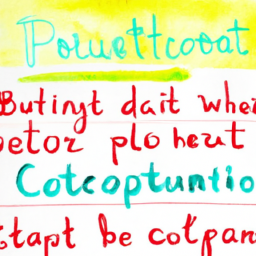 Pouettcoat
Butingt dait whe
petor plo heut
Cotcoptuntio
tapt be cotpan